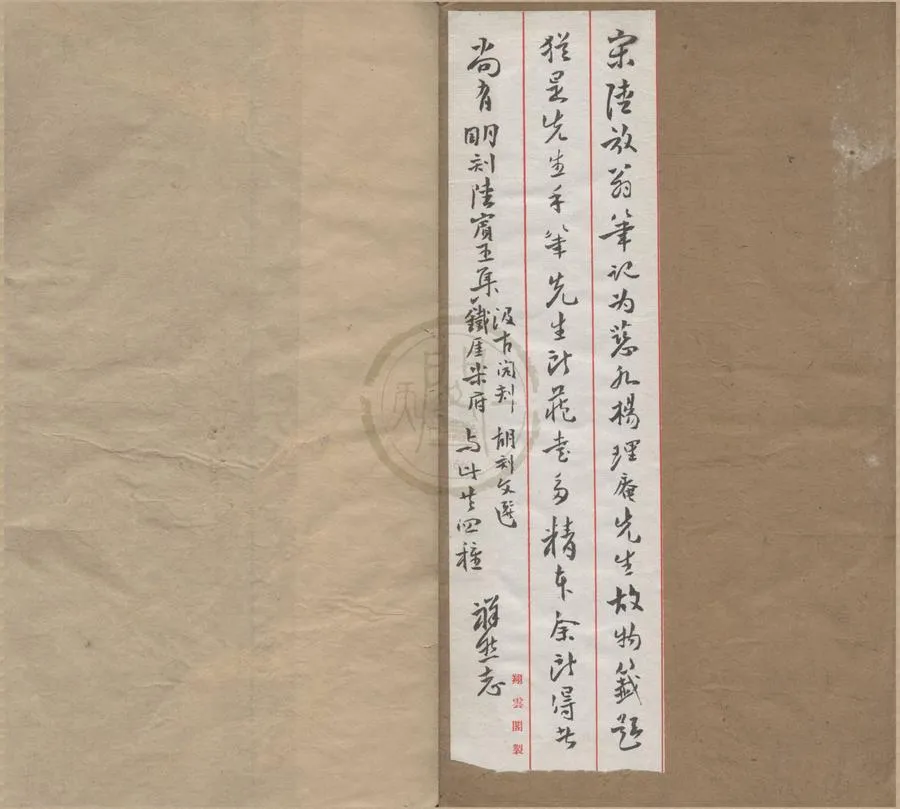 宋陸放翁筆記为慈水楊理庵先生故物籤題
猶是先生手筆先生所藏書多精本余所得者
尚有明刻陸賓王集
汲古阁刻
鐵厓樂府
胡刻文選
与此共四種
祥熊志
翔雲閣製